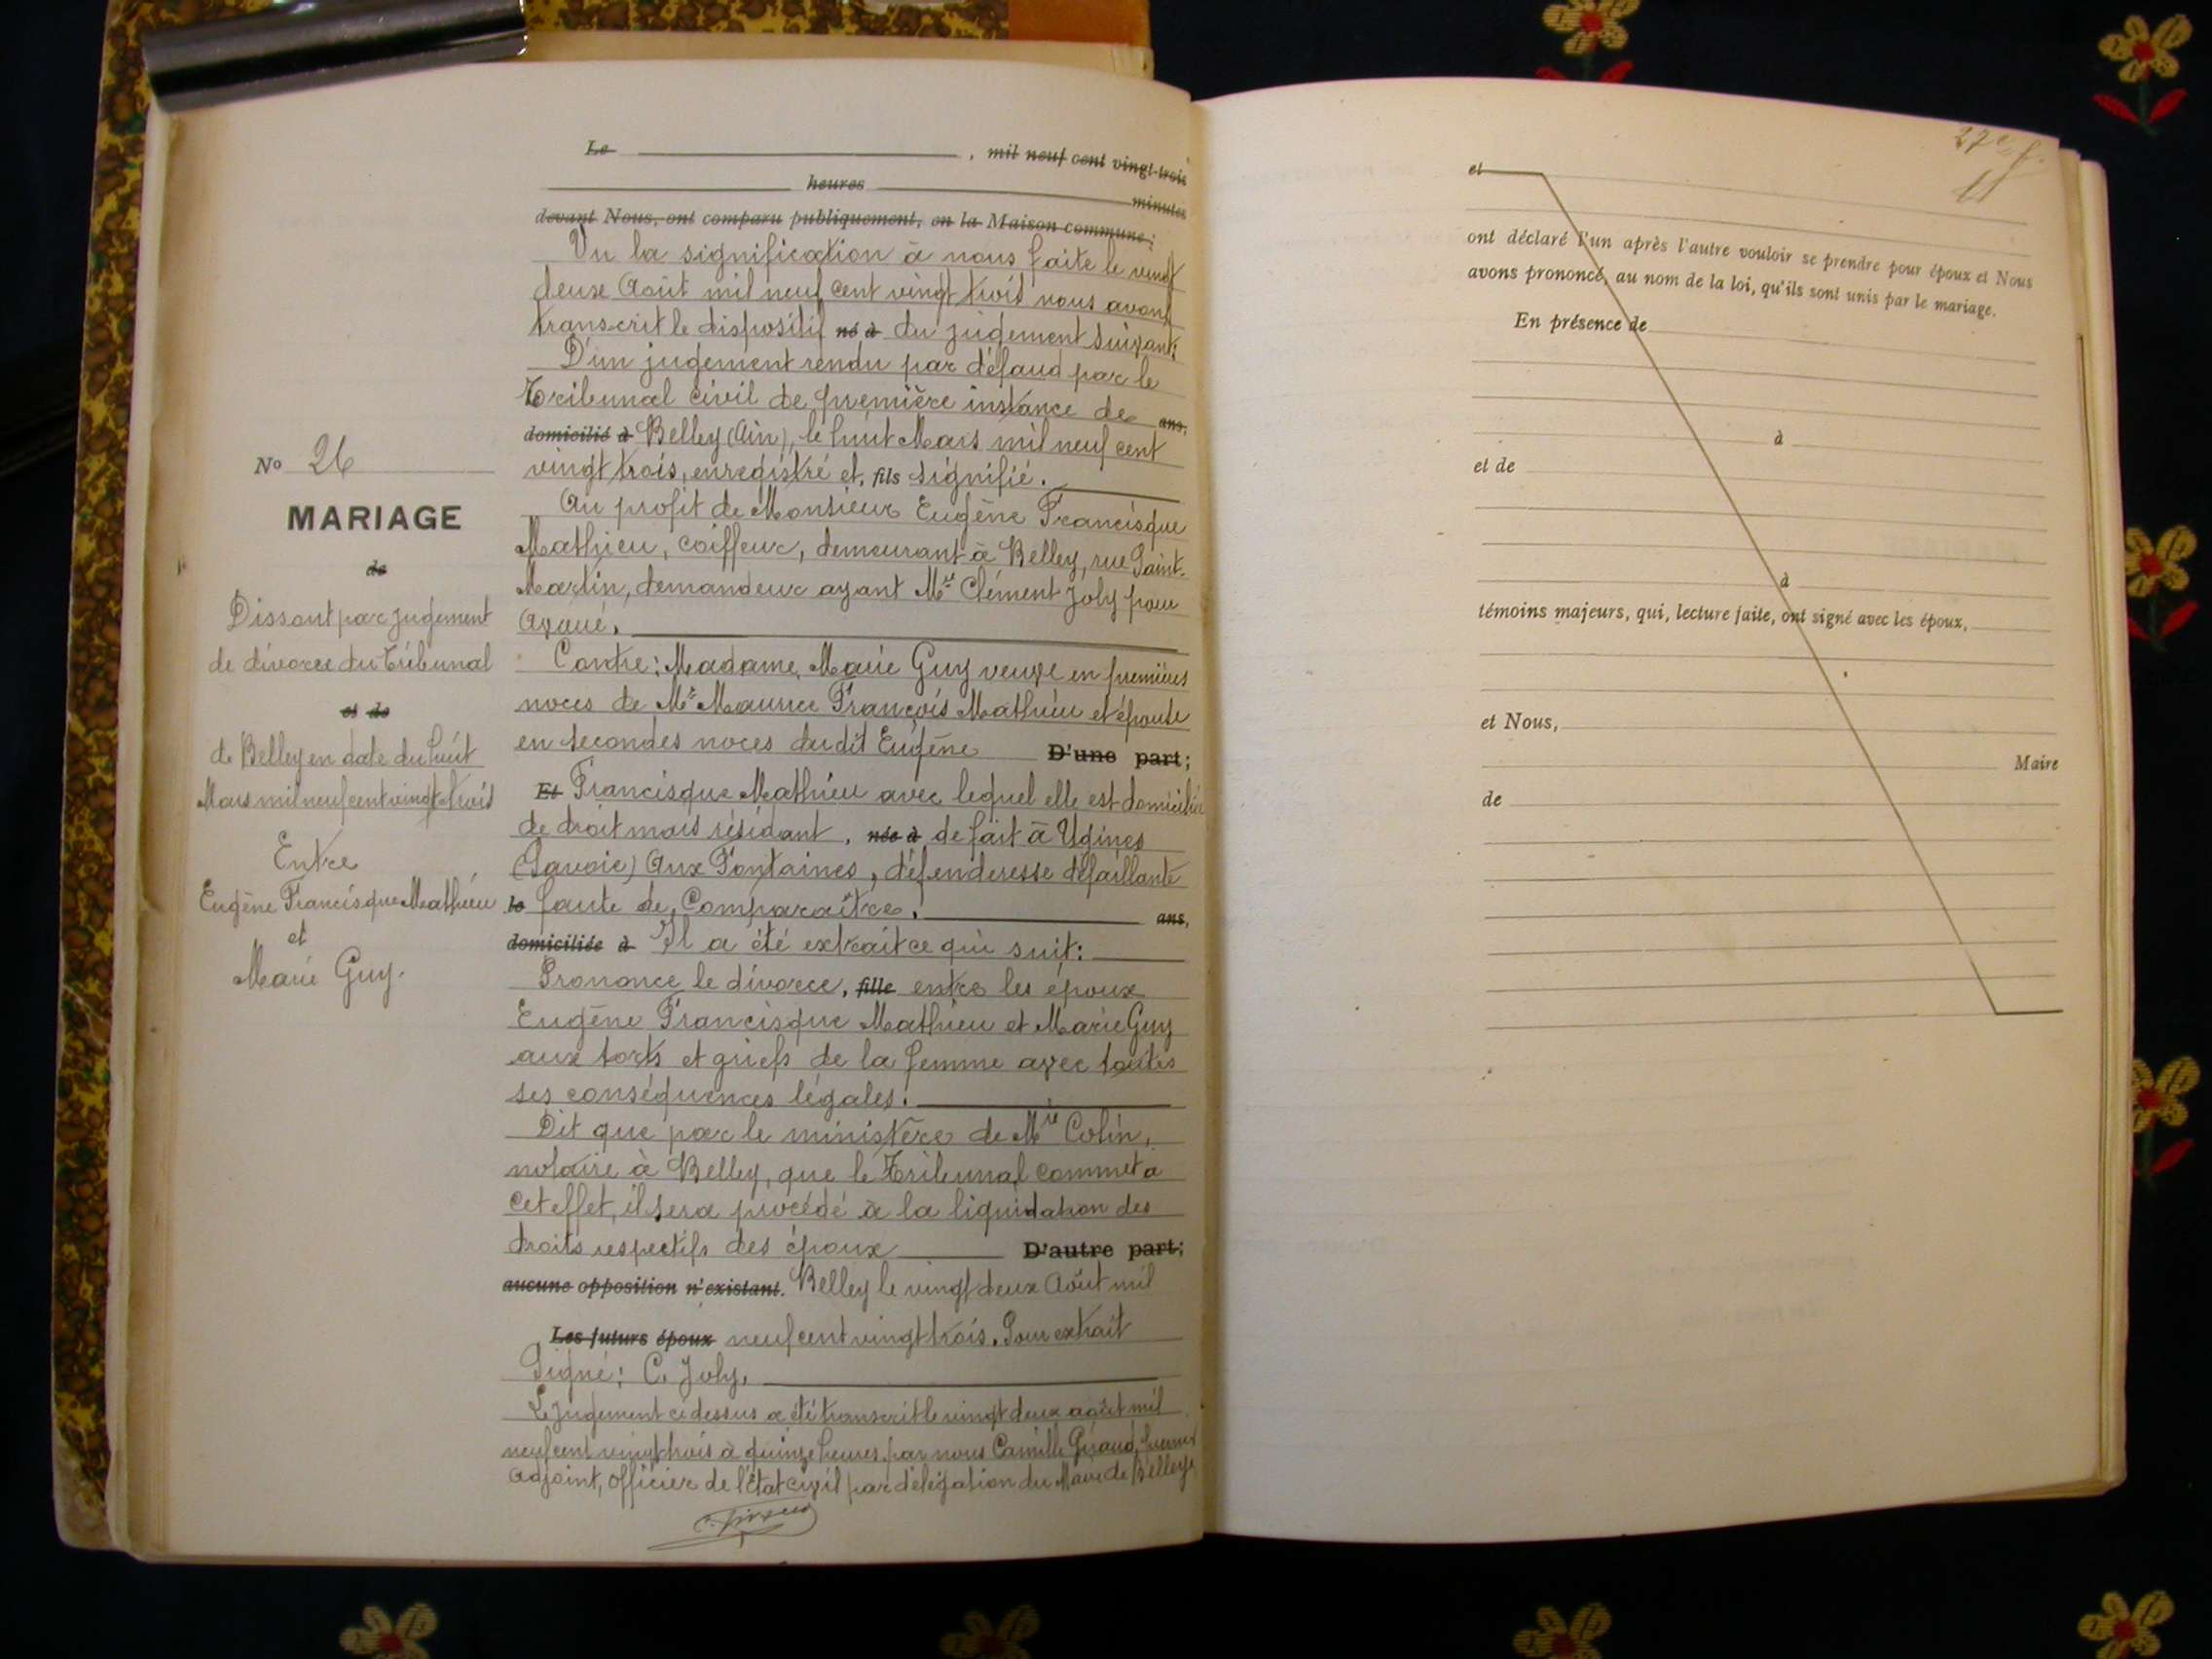 Le , mil neuf cent vingt-trois
heures minutes
devant Nous, ont comparu publiquement, en la Maison commune;
Vu la signification à nous faite le vingt
deux Août mil neuf cent vingt trois nous avons
transcrit le dispositif né à du jugement suivant:
D'un jugement rendu par défaud par le
Tribunal civil de première instance de ans,
domicilié à Belley (Ain), le huit Mars mil neuf cent
vingt trois, enregistré et, fils signifié.
Au profit de Monsieur Eugène Francisque
Mathieu, coiffeur, demeurant à Belley, rue Saint-
Martin, demandeur ayant Mre Clément Joly pour
Avoué.
Contre: Madame Marie Guy veuve en premières
noces de Mr Maurice François Mathieu et épouse
en secondes noces dudit Eugène D'une part;
Et Francisque Mathieu avec lequel elle est domiciliée
de droit mais résidant, née à de fait à Ugines
(Savoie) Aux Fontaines, défenderesse défaillante
le faute de Comparaître. ans,
domiciliée à Il a été extrait ce qui suit:
Prononce le divorce, fille entre les époux
Eugène Francisque Mathieu et Marie Guy
aux torts et griefs de la femme avec toutes
ses conséquences légales.
Dit que par le ministère de Mre Colin,
notaire à Belley, que le Tribunal commet à
cet effet, il sera procédé à la liquidation des
droits respectifs des époux D'autre part;
aucune opposition n'existant. Belley le vingt deux Août mil
Les futurs époux neuf cent vingt trois. Pour extrait
Signé: C. Joly.
Le jugement ci dessus a été transcrit le vingt deux août mil
neuf cent vingt trois à quinze heures, par nous Camille Giraud, premier
adjoint, officier de l'état civil par délégation du Maire de Belley.
No 26
MARIAGE
de
Dissout par jugement
de divorce du Tribunal
et de
de Belley en date du huit
Mars mil neuf cent vingt trois
Entre
Eugène Francisque Mathieu
et
Marie Guy.
27e f.
et
ont déclaré l'un après l'autre vouloir se prendre pour époux et Nous
avons prononcé, au nom de la loi, qu'ils sont unis par le mariage.
En présence de
à
et de
à
témoins majeurs, qui, lecture faite, ont signé avec les époux,
et Nous,
Maire
de